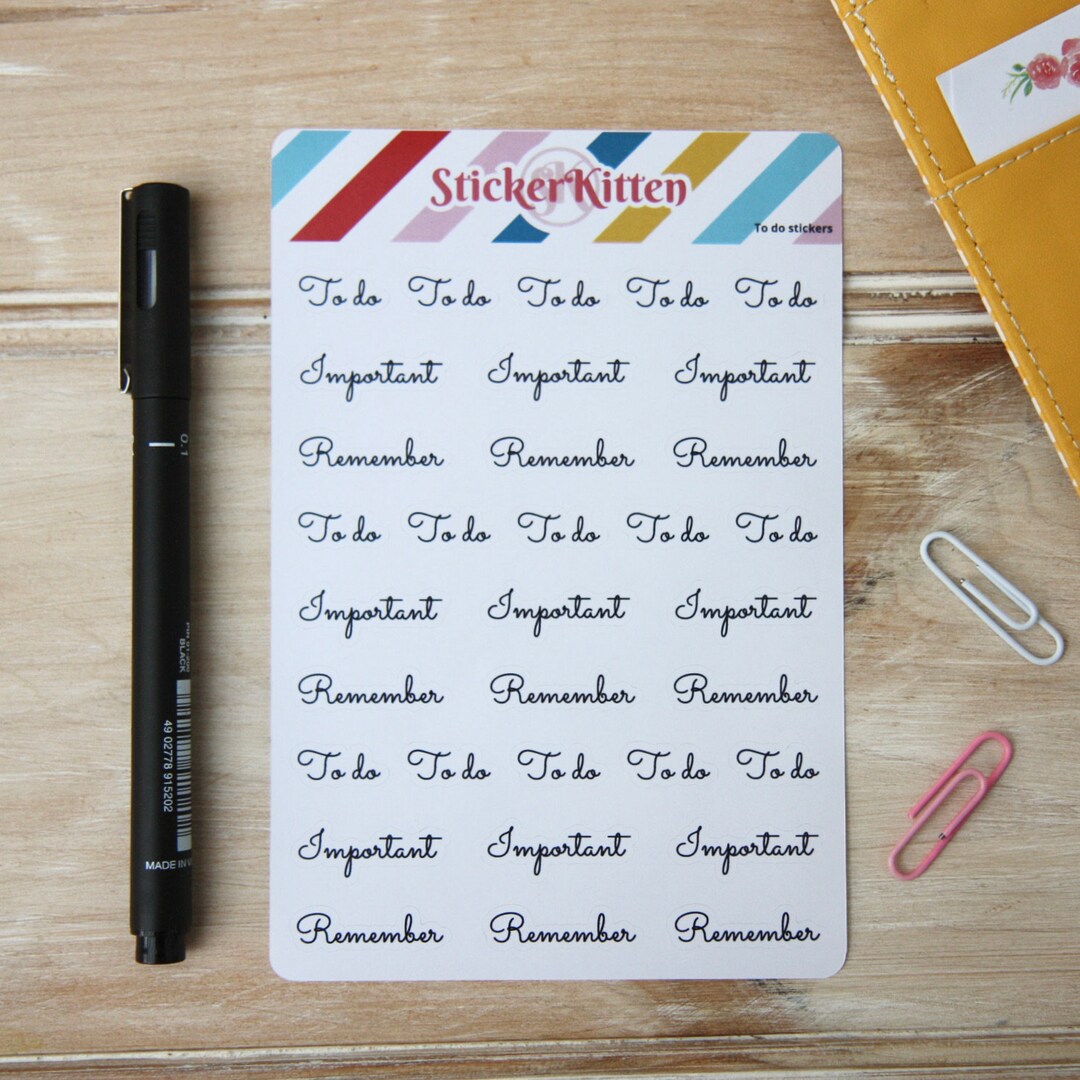 StickerKitten
To do stickers
To do To do To do To do To do
Important Important Important
Remember Remember Remember
To do To do To do To do To do
Important Important Important
Remember Remember Remember
To do To do To do To do To do
Important Important Important
Remember Remember Remember
0.1
BLACK
49 02778 915202
MADE IN